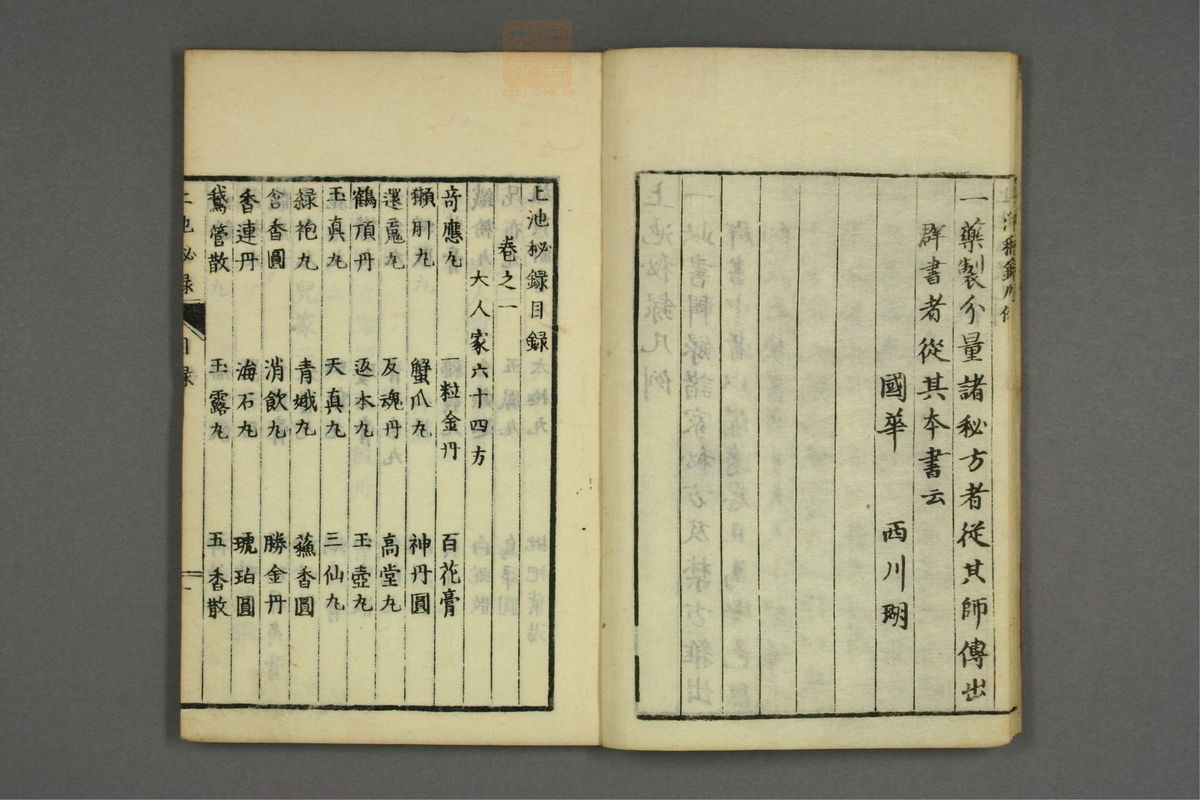 一藥製分量諸秘方者從其師傳出
群書者從其本書云
國華　西川瑚
上池秘錄目錄
卷之一
大人家六十四方
奇應丸　一粒金丹　百花膏
獺肝丸　蟹爪丸　神丹圓
還魂丸　反魂丹　高堂丸
鶴頂丹　返本丸　玉壺丸
玉真丸　天真丸　三仙丸
緑袍丸　青娥丸　蘓香圓
含香圓　消飲丸　勝金丹
香連丹　海石丸　琥珀圓
鵞管散　玉露丸　五香散
上池秘录　目录